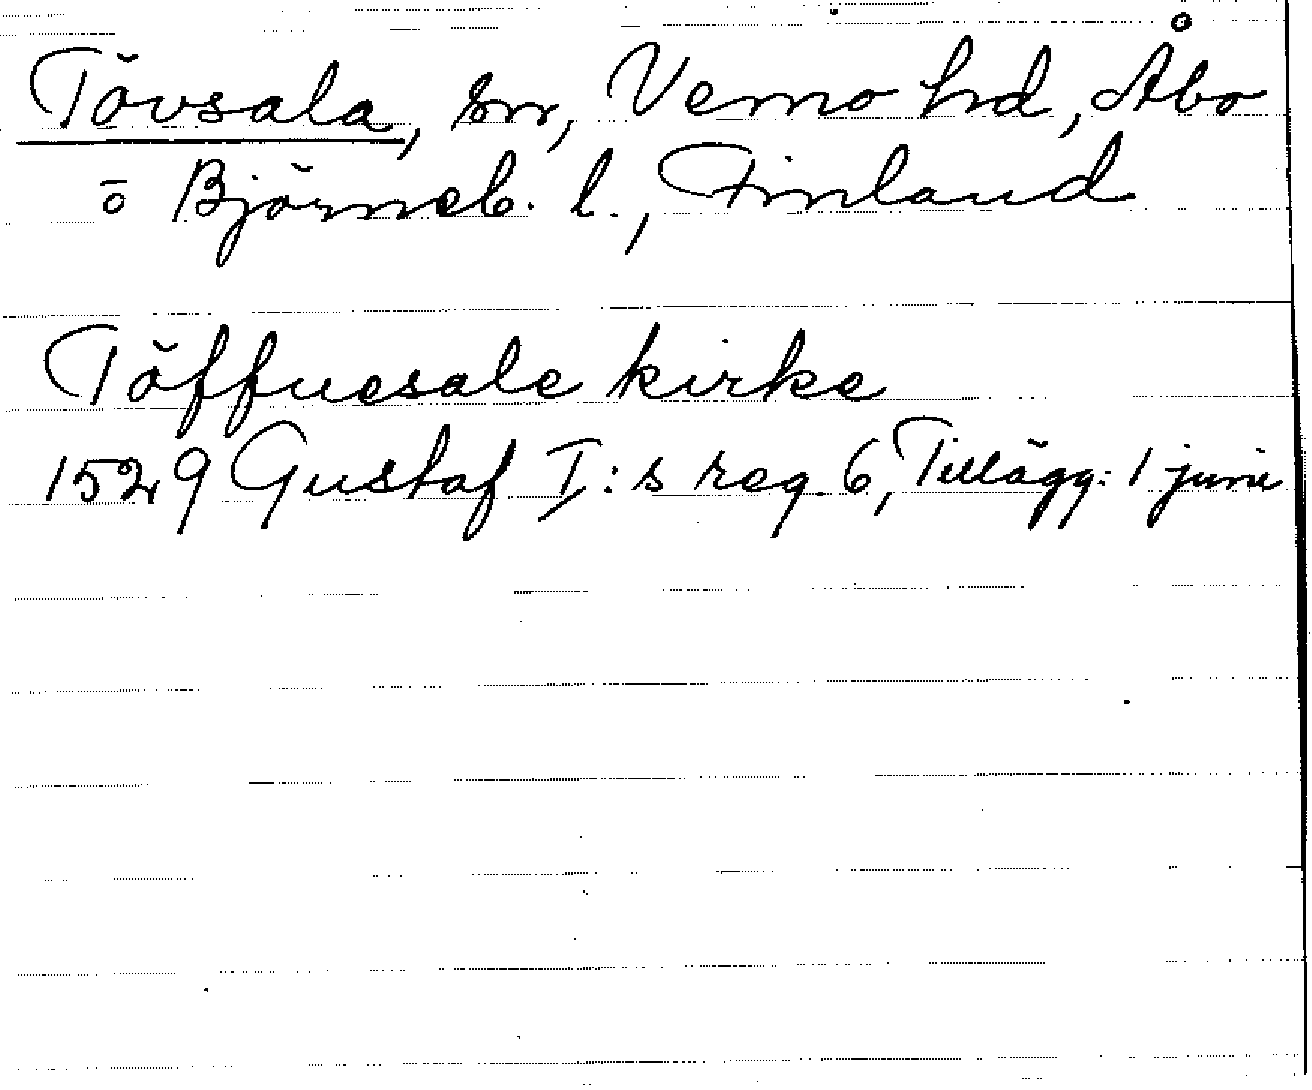 Tövsala, sn, Vemo hd, Åbo
o Björneb. l., Finland
Töffuesale kirke
1529 Gustaf I:s reg. 6, Tillägg: 1 juni